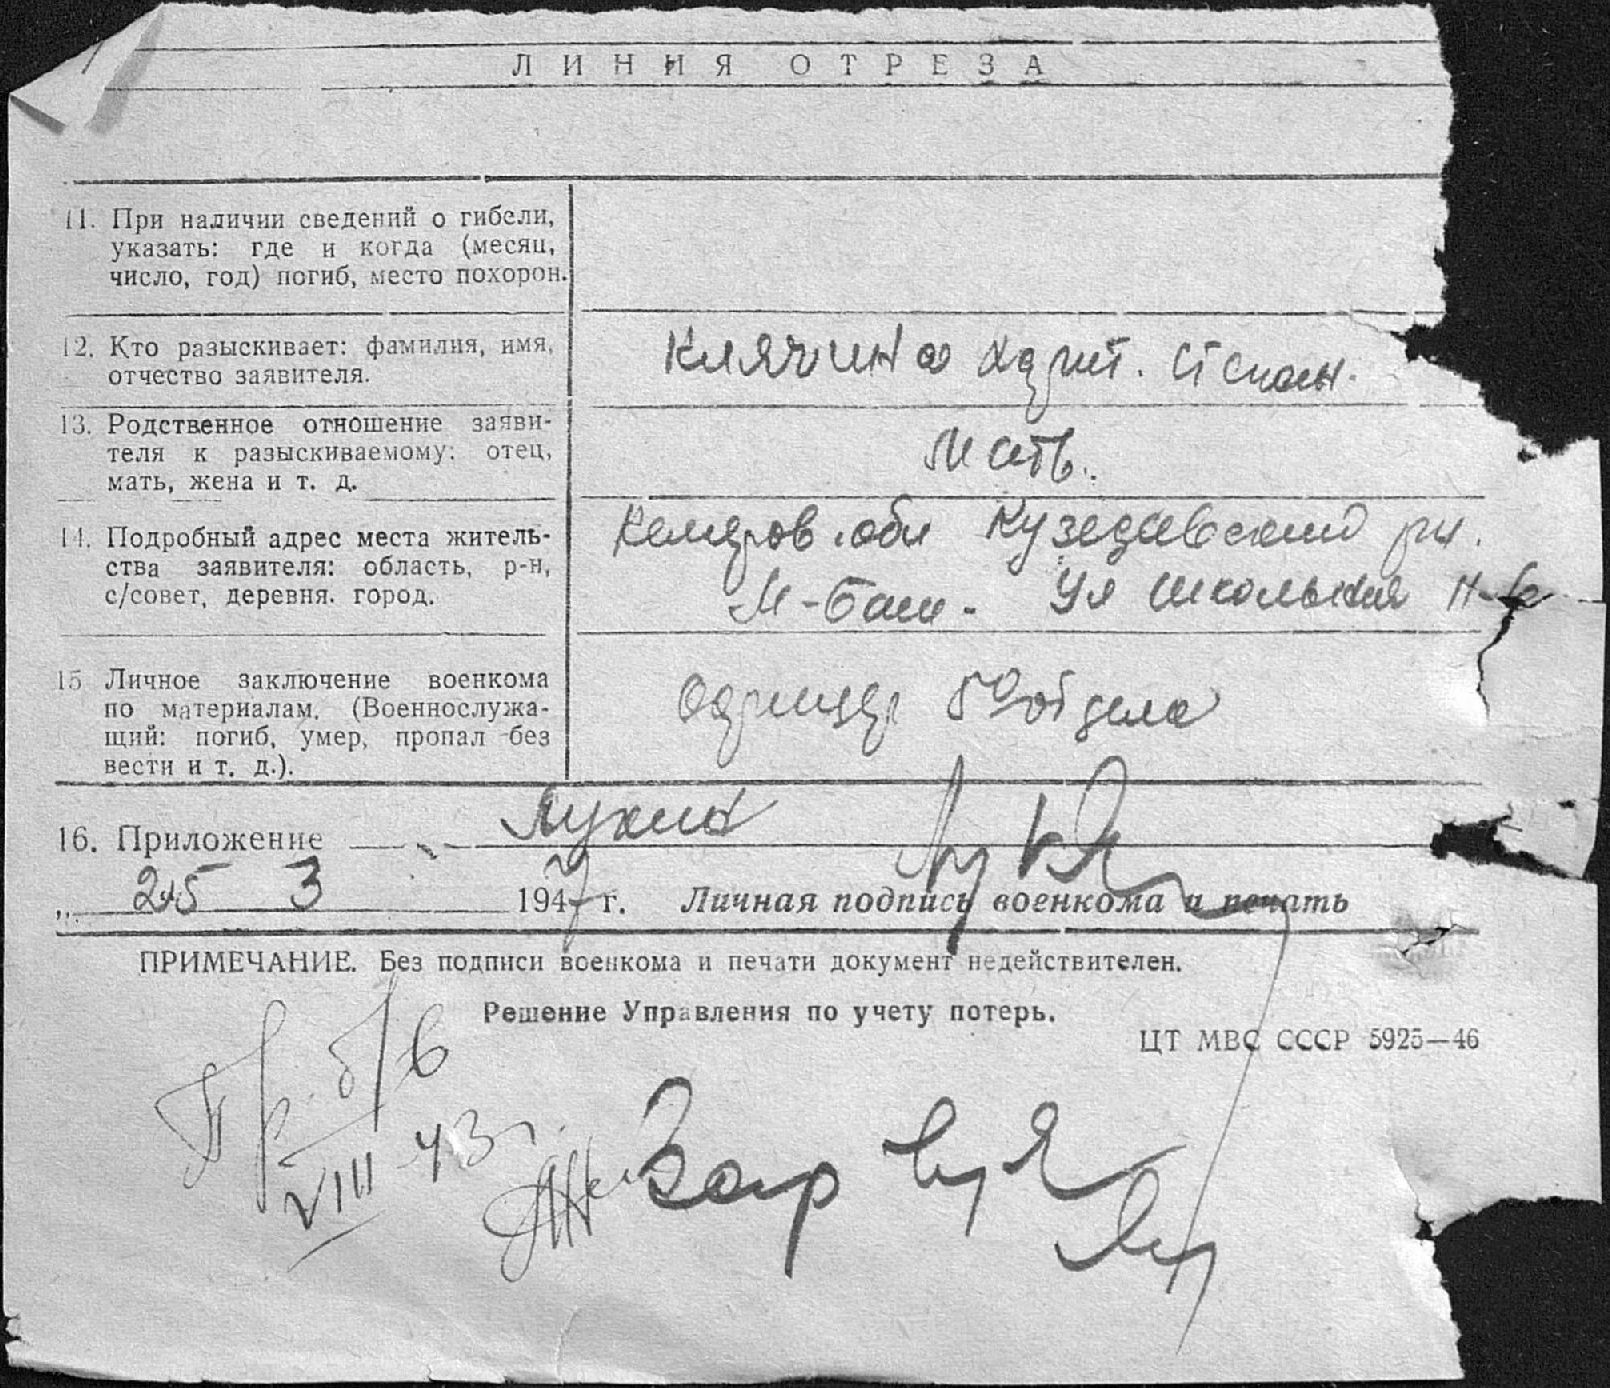 ЛИНИЯ ОТРЕЗА
11. При наличии сведений о гибели,
указать: где и когда (месяц,
число, год) погиб, место похорон.
12. Кто разыскивает: фамилия, имя,
отчество заявителя.
Клячина Харит. Степан.
13. Родственное отношение заяви-
теля к разыскиваемому: отец,
мать, жена и т. д.
Мать.
14. Подробный адрес места житель-
ства заявителя: область, р-н,
с/совет, деревня. город.
Кемеров. обл Кузедеевский рн.
М-Баш- Ул Школьная
15 Личное заключение военкома
по материалам. (Военнослужа-
щий: погиб, умер, пропал без
вести и т. д.).
Офицер отдела
16. Приложение
25 3 1947 г. Личная подпись военкома и печать
ПРИМЕЧАНИЕ. Без подписи военкома и печати документ недействителен.
Решение Управления по учету потерь.
ЦТ МВС СССР 5925—46
Пр. б/в
VIII 43 г.